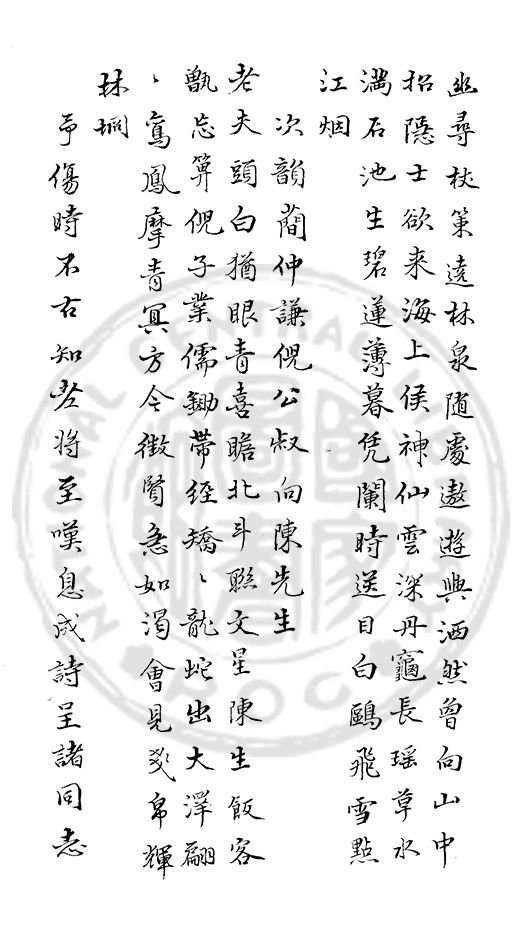 幽尋杖策遠林泉随處遨遊興洒然曾向山中
招隱士欲来海上侯神仙雲深丹竈長瑶草水
滿石池生碧蓮薄暮凭闌時送目白鷗飛雪點
江烟
次韻藺仲謙倪公叔向陳先生
老夫頭白猶眼青喜瞻北斗聮文星陳生飯客
甑忘箅倪子業儒鋤帶經矯〻龍蛇出大澤翩
〻鸞鳳摩青冥方今徵賢急如渴會見帛輝
林坰
予傷時不古知老将至嘆息成詩呈諸同志
NATIONAL CENTRAL LIBRARY
ROC